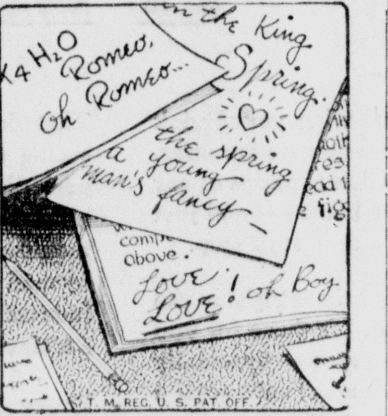 X4 H2O
Romeo,
oh Romeo...
in the King
Spring.
the spring
a young
man's fancy
above.
Love
Love! oh Boy
T. M. REG. U. S. PAT. OFF.